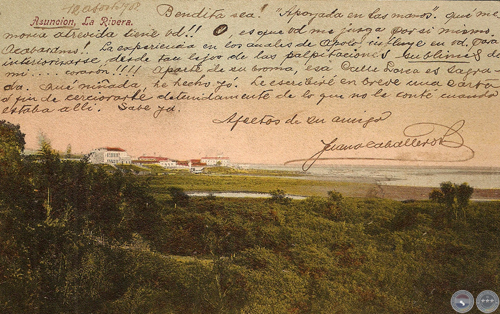 Asuncion, La Rivera.
Bendita sea! "Apoyada en las manos", que me-
moria atrevida tiene vd!! O es que vd me juzga por sí mismo,
Acabáramos! La experiencia en los anales de Apolo, influye en vd, para
interiorizarse, desde tan lejos de las palpitaciones sublimes de
mi... corazón!!!! Aparte de su broma, esa boca es sagra-
da. Que niñada, he hecho yó. Le escribiré en breve una carta
á fin de cerciorarle detenidamente de lo que no le conté cuando
estaba allí. Sabe ya.
Afectos de su amigo